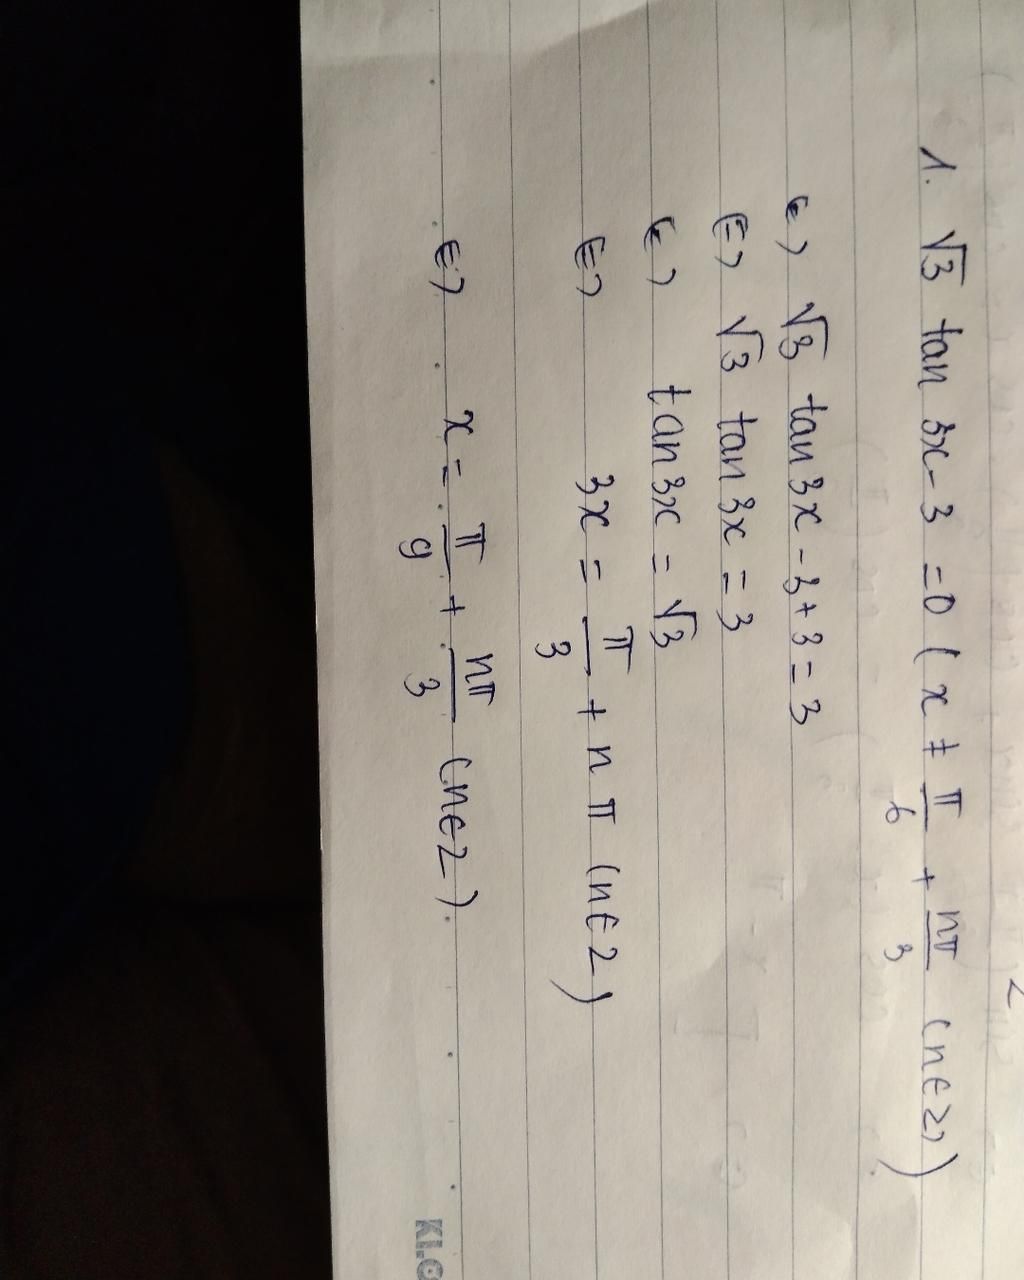 1. √3 tan 3x - 3 = 0 ( x ≠ π/6 + nπ/3 (n∈Z))
<=> √3 tan 3x - 3 + 3 = 3
<=> √3 tan 3x = 3
<=> tan 3x = √3
<=> 3x = π/3 + nπ (n∈Z)
<=> x = π/9 + nπ/3 (n∈Z).